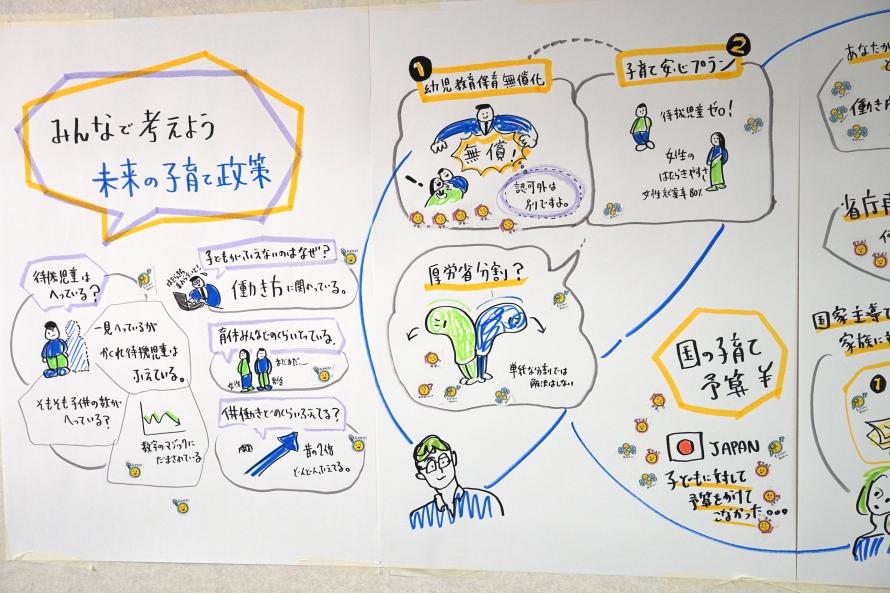 みんなで考えよう
未来の子育て政策
待機児童は
へっている?
一見へっているが
かくれ待機児童は
ふえている。
そもそも子供の数が
へっている?
数字のマジックに
だまされている
子どもがふえないのはなぜ?
働き方に関わっている。
育休みんなどのくらいとっている。
まだまだ…
女性
男性
併働きどのくらいふえてる?
昔の2倍
どんどんふえてる。
1
幼児教育保育無償化
無償!
!
認可外は
別ですよ。
2
子育て安心プラン
待機児童ゼロ!
女性の
はたらきやすさ
女性就業率80%
厚労省分割?
単純な分割では
解決はしない
国の子育て
予算¥
JAPAN
子どもに対して
予算をかけて
こなかった…
あなたが
働き
省庁再
国家主導で
家族に
1